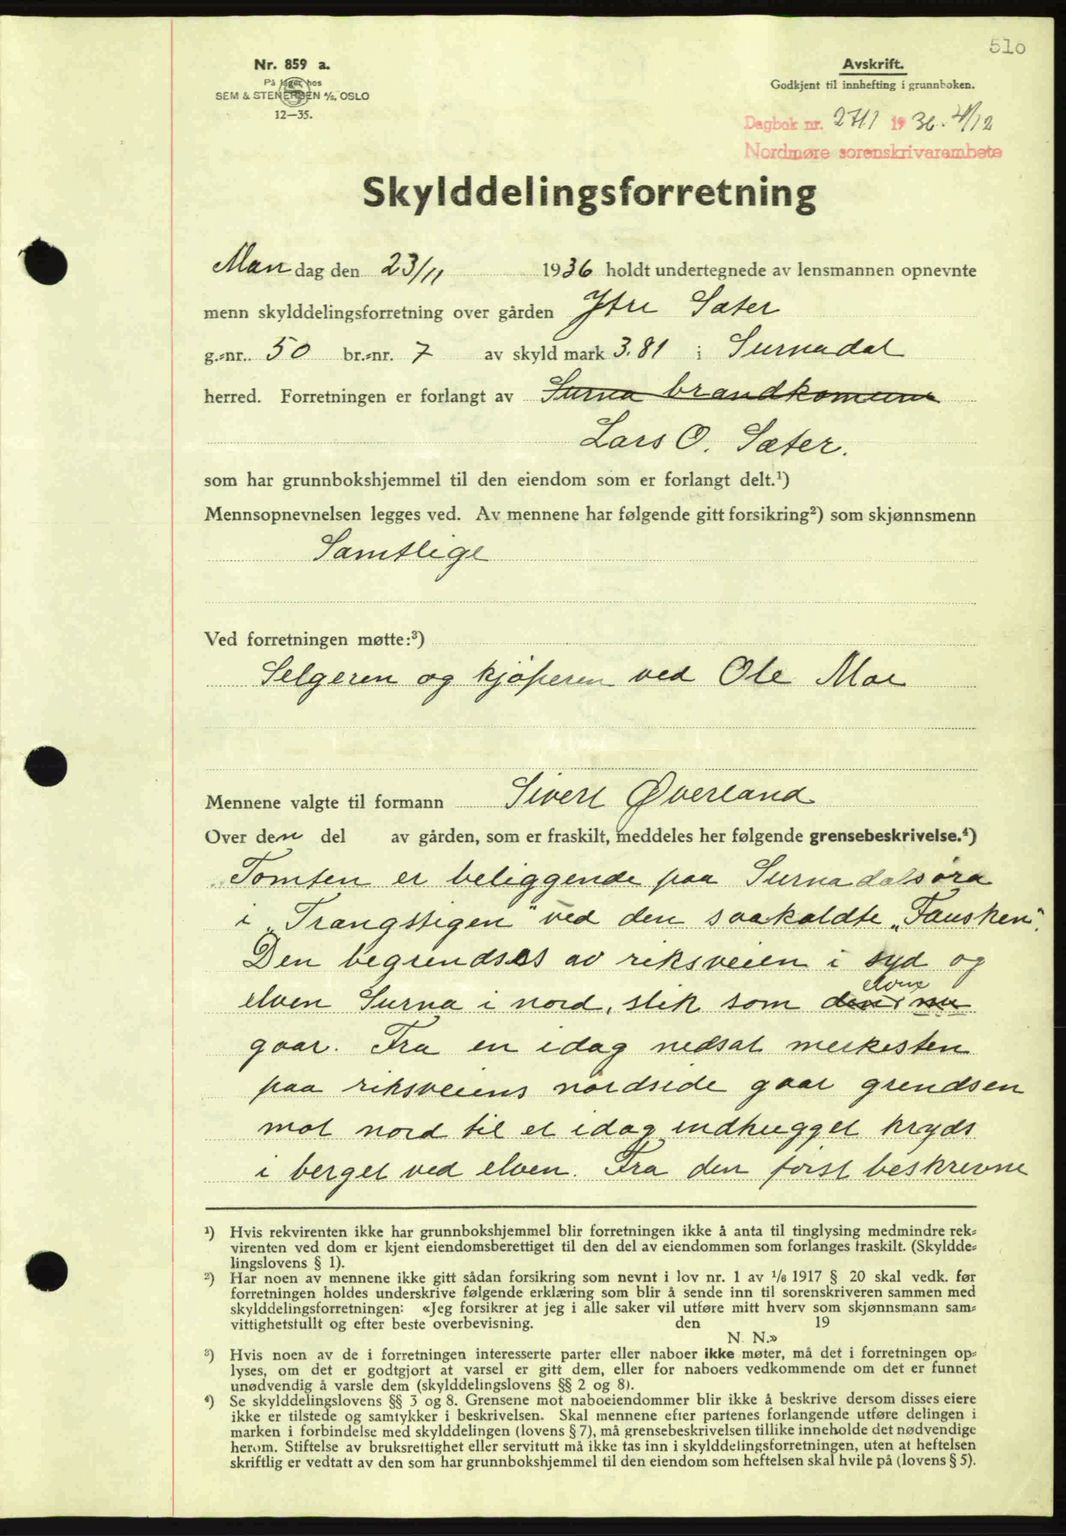 510
Nr. 859 a.
På lager hos
SEM & STENERSEN A/S, OSLO
12—35.
Avskrift.
Godkjent til innhefting i grunnboken.
Dagbok nr. 2711 1936. 4/12
Nordmøre sorenskrivarembete
Skylddelingsforretning
Man dag den 23/11 1936 holdt undertegnede av lensmannen opnevnte
menn skylddelingsforretning over gården Ytre Sæter
g.-nr. 50 br.-nr. 7 av skyld mark 3.81 i Surnadal
herred. Forretningen er forlangt av Surna brandkomune
Lars O. Sæter.
som har grunnbokshjemmel til den eiendom som er forlangt delt.¹)
Mennsopnevnelsen legges ved. Av mennene har følgende gitt forsikring²) som skjønnsmenn
Samtlige
Ved forretningen møtte:³)
Selgeren og kjøperen ved Ole Moe
Mennene valgte til formann Sivert Øverland
Over den del av gården, som er fraskilt, meddeles her følgende grensebeskrivelse.⁴)
Tomten er beliggende paa Surnadalsøra
i „Trangstigen" ved den saakaldte „Fausken".
Den begrendses av riksveien i syd og
elven Surna i nord, slik som den nu elven
gaar. Fra en idag nedsat merkesten
paa riksveiens nordside gaar grendsen
mot nord til et idag indhugget kryds
i berget ved elven. Fra den først beskrevne
¹) Hvis rekvirenten ikke har grunnbokshjemmel blir forretningen ikke å anta til tinglysing medmindre rek-
virenten ved dom er kjent eiendomsberettiget til den del av eiendommen som forlanges fraskilt. (Skyldde-
lingslovens § 1).
²) Har noen av mennene ikke gitt sådan forsikring som nevnt i lov nr. 1 av 1/6 1917 § 20 skal vedk. før
forretningen holdes underskrive følgende erklæring som blir å sende inn til sorenskriveren sammen med
skylddelingsforretningen: «Jeg forsikrer at jeg i alle saker vil utføre mitt hverv som skjønnsmann sam-
vittighetsfullt og efter beste overbevisning. den 19
N. N.»
³) Hvis noen av de i forretningen interesserte parter eller naboer ikke møter, må det i forretningen op-
lyses, om det er godtgjort at varsel er gitt dem, eller for naboers vedkommende om det er funnet
unødvendig å varsle dem (skylddelingslovens §§ 2 og 8).
⁴) Se skylddelingslovens §§ 3 og 8. Grensene mot naboeiendommer blir ikke å beskrive dersom disses eiere
ikke er tilstede og samtykker i beskrivelsen. Skal mennene efter partenes forlangende utføre delingen i
marken i forbindelse med skylddelingen (lovens § 7), må grensebeskrivelsen tillike inneholde det nødvendige
herom. Stiftelse av bruksrettighet eller servitutt må ikke tas inn i skylddelingsforretningen, uten at heftelsen
skriftlig er vedtatt av den som har grunnbokshjemmel til den eiendom som heftelsen skal hvile på (lovens § 5).